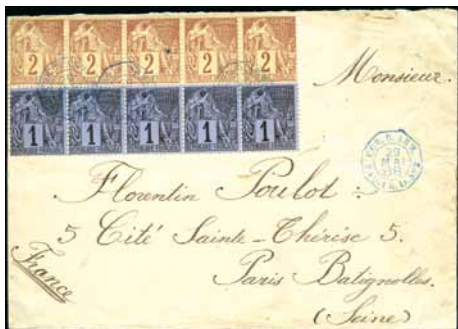 2 2 2 2 2
1 1 1 1 1
Monsieur.
29
MAI
Florentin Poulot :
5 Cité Sainte-Thérèse 5.
Paris Batignolles.
(Seine)
France